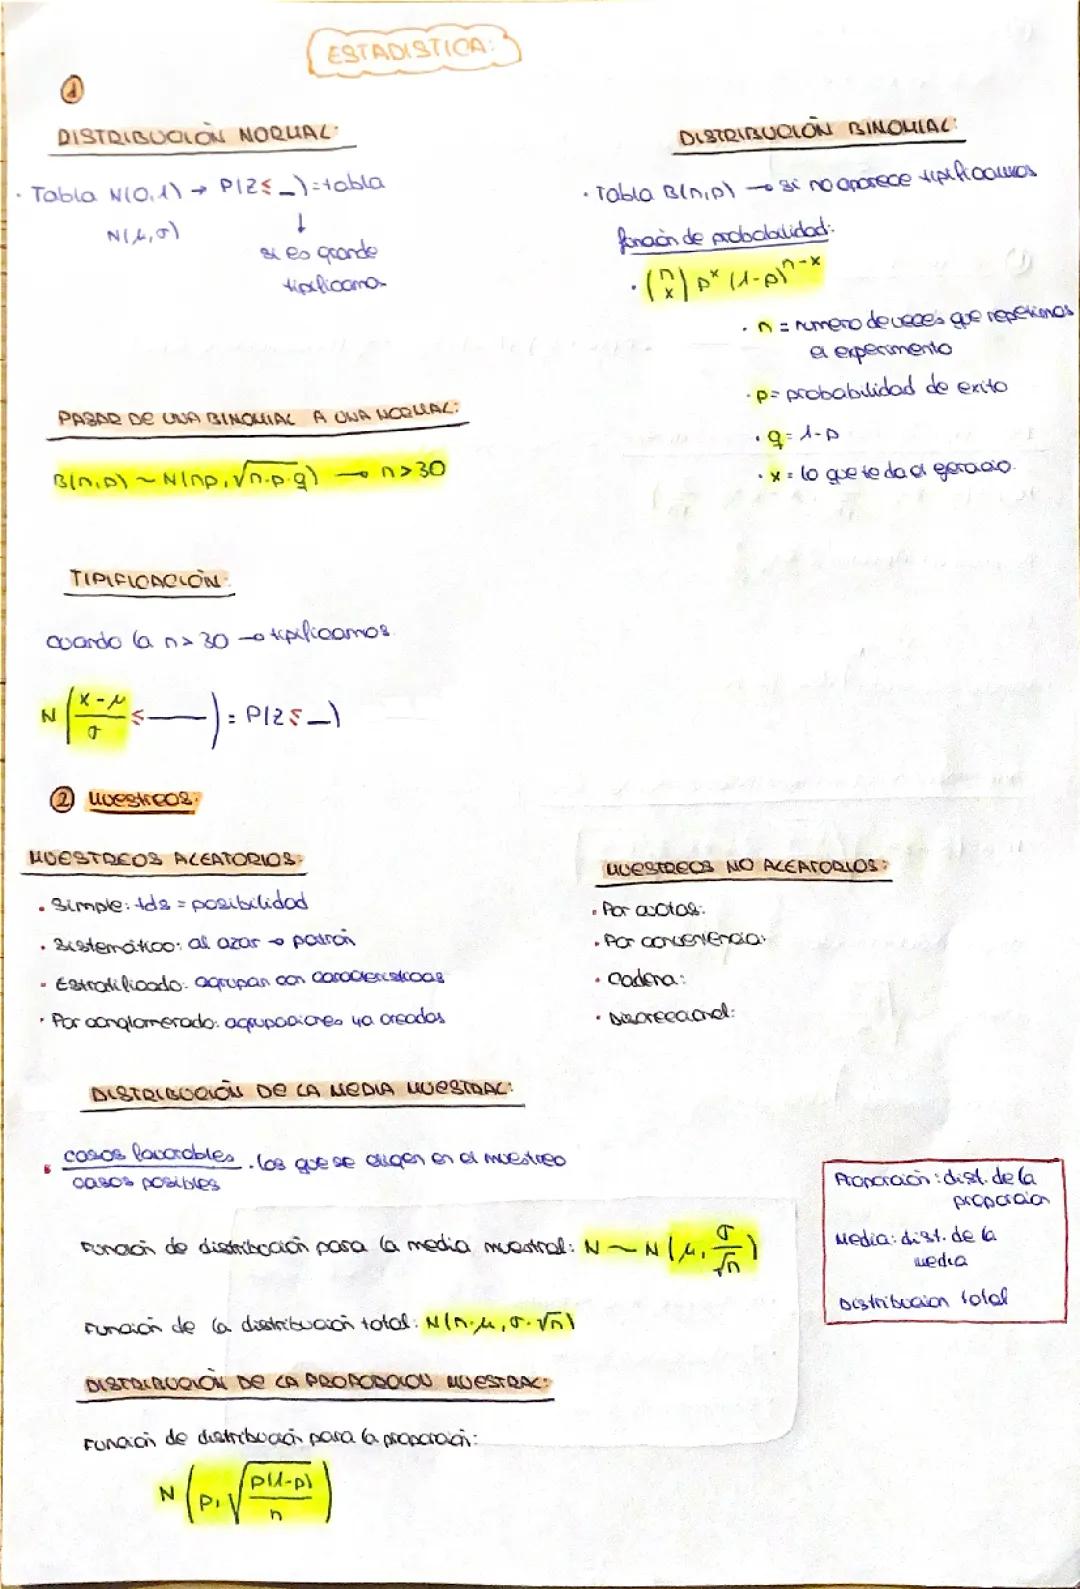 ESTADISTICA:
1
DISTRIBUCIÓN NORMAL:
· Tabla N(0,1) → P(Z≤_)=tabla
N(μ,σ)
↓
si es grande
tipificamos
DISTRIBUCIÓN BINOMIAL:
· Tabla B(n,p) → si no aparece tipificamos
función de probabilidad:
· (n x) pˣ (1-p)ⁿ⁻ˣ
· n = numero de veces que repetimos
el experimento
· p= probabilidad de exito
· q= 1-p
· x = lo que te da el ejercicio.
PASAR DE UNA BINOMIAL A UNA NORMAL:
B(n,p) ~ N(np, √n·p·q) → n>30
TIPIFICACIÓN:
cuando la n>30 → tipificamos
N (x-μ/σ ≤ —) = P(Z≤_)
2 Muestreos:
MUESTREOS ALEATORIOS:
· Simple: tds = posibilidad
· Sistemático: al azar → patrón
· Estratificado: agrupan con caracteristicas
· Por conglomerado: agrupaciones ya creadas
MUESTREOS NO ALEATORIOS:
· Por cuotas:
· Por conveniencia:
· Cadena:
· Discrecional:
DISTRIBUCIÓN DE LA MEDIA MUESTRAL:
· casos favorables . los que se eligen en el muestreo
casos posibles
Función de distribución para la media muestral: N ~ N(μ, σ/√n)
Función de la distribución total: N(n·μ, σ·√n)
Proporción: dist. de la
proporción
Media: dist. de la
media
Distribucion total
DISTRIBUCIÓN DE LA PROPORCION MUESTRAL:
Función de distribución para la proporción:
N (p, √p(1-p)/n)